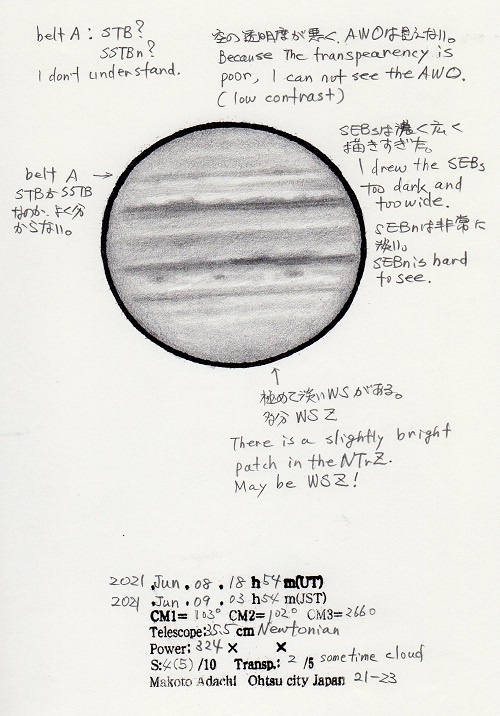 belt A : STB?
SSTBn?
I don't understand.
空の透明度が悪く、AWOは見えない。
Because The transpearency is
poor, I can not see the AWO.
(low contrast)
SEBsは濃く広く
描きすぎた。
I drew the SEBs
too dark and
too wide.
SEBnは非常に
淡い。
SEBn is hard
to see.
belt A →
STBかSSTB
なのか、よく分
からない。
↑
極めて淡いWSがある。
多分 WSZ
There is a slightly bright
patch in the NTrZ.
May be WSZ!
2021 .Jun . 08 . 18 h 54 m(UT)
2021 .Jun . 09 . 03 h 54 m(JST)
CM1= 103° CM2= 102° CM3= 266°
Telescope: 35.5 cm Newtonian
Power: 324 × ×
S: 4(5) /10 Transp.: 2 /5 sometime cloud
Makoto Adachi Ohtsu city Japan 21-23